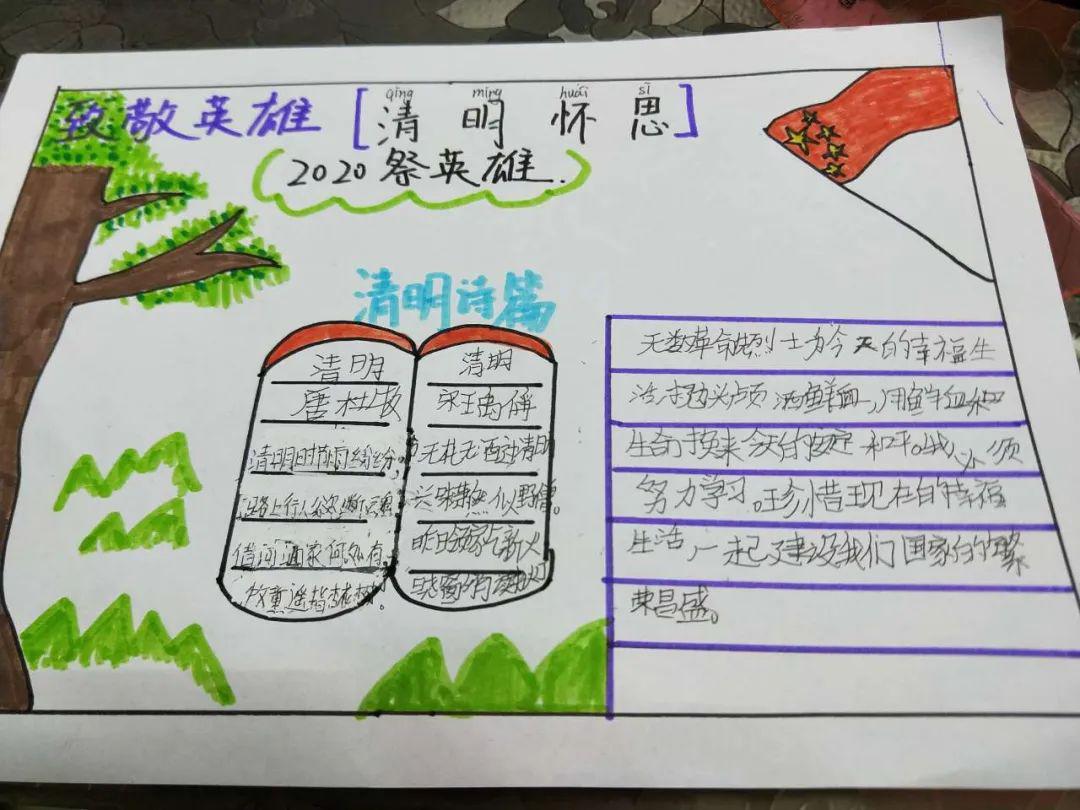 致敬英雄[清明怀思]
qīng míng huái sī
2020祭英雄.
清明诗篇
清明
唐杜牧
清明时节雨纷纷,
路上行人欲断魂。
借问酒家何处有,
牧童遥指杏花村。
清明
宋王禹偁
无花无酒过清明
兴味萧然似野僧。
昨日邻家乞新火
晓窗分与读书灯
无数革命烈士为今天的幸福生
活抛头颅洒鲜血,用鲜血和
生命换来今天的安定和平。我必须
努力学习。珍惜现在的幸福
生活,一起建设我们国家的繁
荣昌盛。